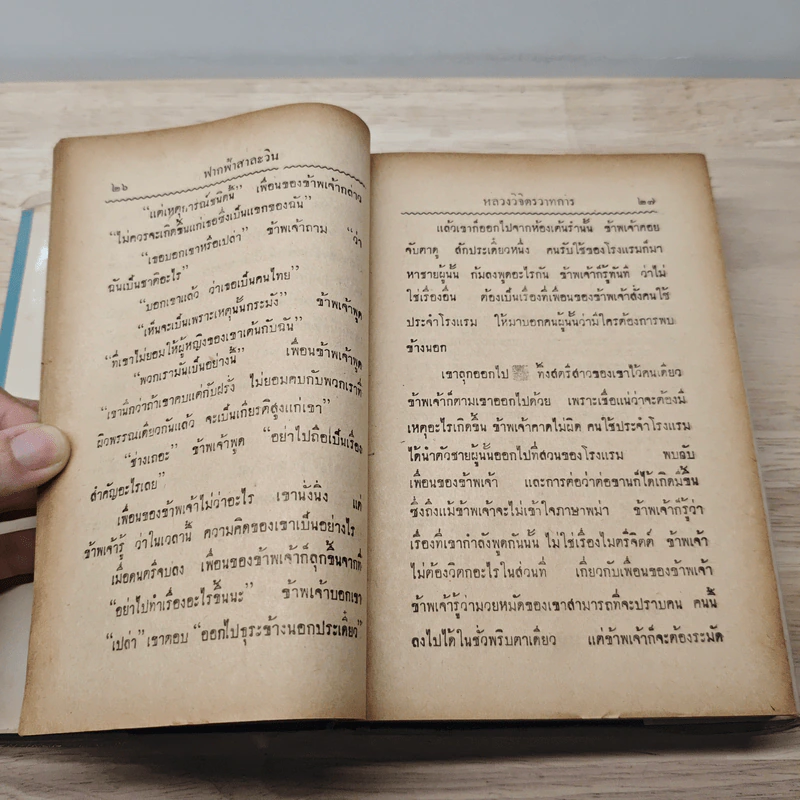 ๒๖ ฟากฟ้าสาละวิน
“แต่เหตุการณ์ชนิดนี้” เพื่อนของข้าพเจ้ากล่าว
“ไม่ควรจะเกิดขึ้นแก่เธอซึ่งเป็นแขกของฉัน”
“เธอบอกเขาหรือเปล่า” ข้าพเจ้าถาม “ว่า
ฉันเป็นชาติอะไร”
“บอกเขาแล้ว ว่าเธอเป็นคนไทย”
“เห็นจะเป็นเพราะเหตุนั้นกระมัง” ข้าพเจ้าพูด
“ที่เขาไม่ยอมให้ผู้หญิงของเขาเต้นกับฉัน”
“พวกเรามันเป็นอย่างนี้” เพื่อนข้าพเจ้าพูด
“เขานึกว่าถ้าเขาคบแต่กับฝรั่ง ไม่ยอมคบกับพวกเราที่
ผิวพรรณเดียวกันแล้ว จะเป็นเกียรติสูงแก่เขา”
“ช่างเถอะ” ข้าพเจ้าพูด “อย่าไปถือเป็นเรื่อง
สำคัญอะไรเลย”
เพื่อนของข้าพเจ้าไม่ว่าอะไร เขานั่งนิ่ง แต่
ข้าพเจ้ารู้ ว่าในเวลานี้ ความคิดของเขาเป็นอย่างไร
เมื่อดนตรีจบลง เพื่อนของข้าพเจ้าก็ลุกขึ้นจากที่
“อย่าไปทำเรื่องอะไรขึ้นนะ” ข้าพเจ้าบอกเขา
“เปล่า” เขาตอบ “ออกไปธุระข้างนอกประเดี๋ยว”
หลวงวิจิตรวาทการ ๒๗
แล้วเขาก็ออกไปจากห้องเต้นรำนั้น ข้าพเจ้าคอย
จับตาดู สักประเดี๋ยวหนึ่ง คนรับใช้ของโรงแรมก็มา
หาชายผู้นั้น ก้มลงพูดอะไรกัน ข้าพเจ้าก็รู้ทันที ว่าไม่
ใช่เรื่องอื่น ต้องเป็นเรื่องที่เพื่อนของข้าพเจ้าสั่งคนใช้
ประจำโรงแรม ให้มาบอกคนผู้นั้นว่ามีใครต้องการพบ
ข้างนอก
เขาลุกออกไป ทิ้งสตรีสาวของเขาไว้คนเดียว
ข้าพเจ้าก็ตามเขาออกไปด้วย เพราะเชื่อแน่ว่าจะต้องมี
เหตุอะไรเกิดขึ้น ข้าพเจ้าคาดไม่ผิด คนใช้ประจำโรงแรม
ได้นำตัวชายผู้นั้นออกไปที่สวนของโรงแรม พบกับ
เพื่อนของข้าพเจ้า และการต่อว่าต่อขานก็ได้เกิดมีขึ้น
ซึ่งถึงแม้ข้าพเจ้าจะไม่เข้าใจภาษาพม่า ข้าพเจ้าก็รู้ว่า
เรื่องที่เขากำลังพูดกันนั้น ไม่ใช่เรื่องไมตรีจิตต์ ข้าพเจ้า
ไม่ต้องวิตกอะไรในส่วนที่ เกี่ยวกับเพื่อนของข้าพเจ้า
ข้าพเจ้ารู้ว่ามวยหมัดของเขาสามารถที่จะปราบคน คนนี้
ลงไปได้ในชั่วพริบตาเดียว แต่ข้าพเจ้าก็จะต้องระมัด